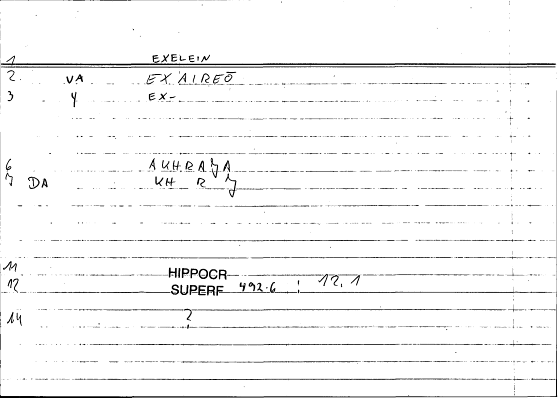 1 EXELEIN
2. VA EX AIREŌ
3 Y EX-
6 AKHRAJA
7 DA KH R J
11
12 HIPPOCR
SUPERF 492.6 : 12,1
14 ?